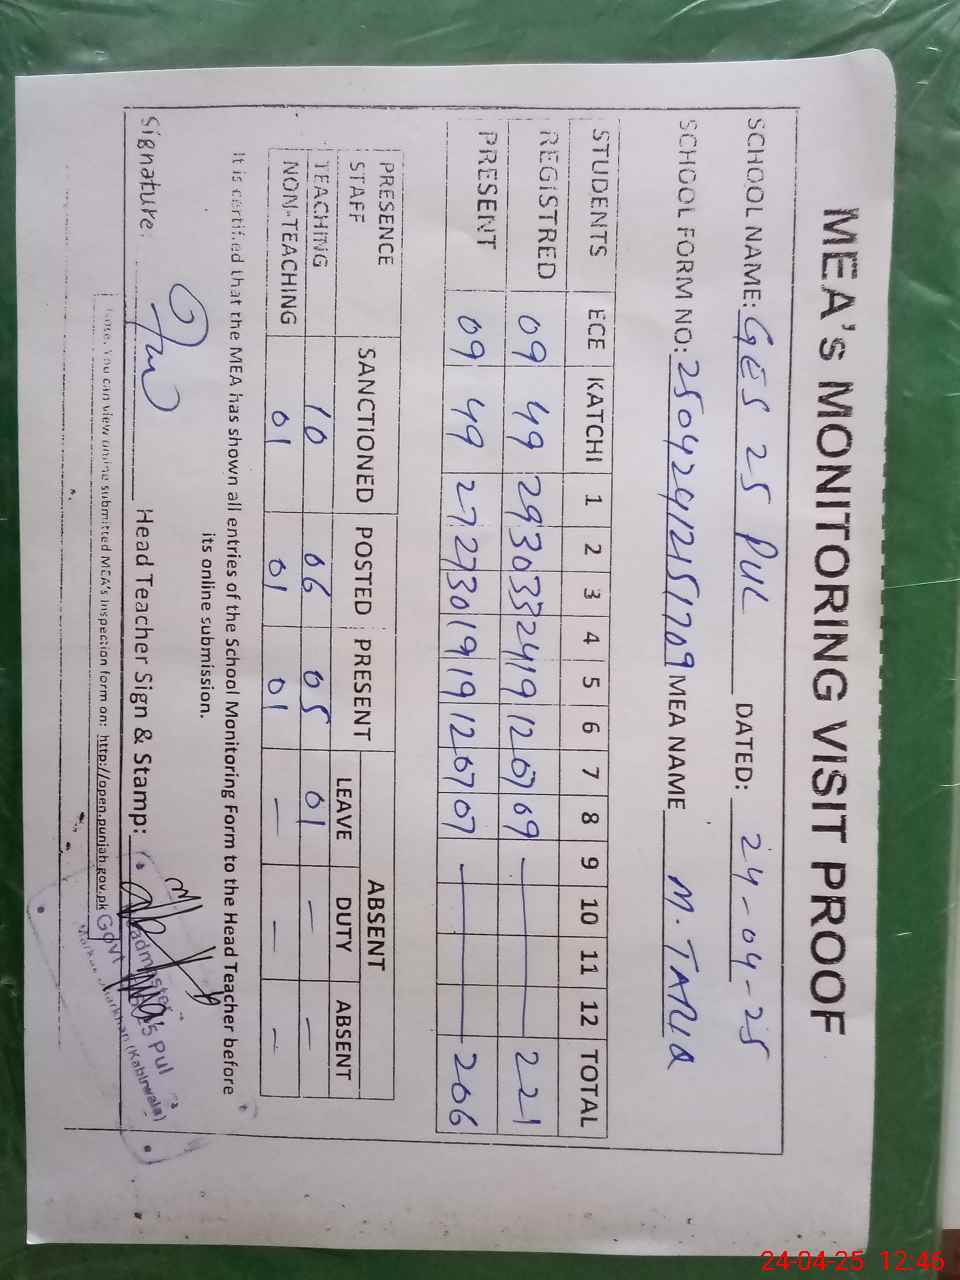 MEA's MONITORING VISIT PROOF
SCHOOL NAME: GES 25 PUL DATED: 24-04-25
SCHOOL FORM NO: 25042412151709 MEA NAME M. TARIQ
STUDENTS ECE KATCHI 1 2 3 4 5 6 7 8 9 10 11 12 TOTAL
REGISTRED 09 49 29 30 33 24 19 12 07 09 — 221
PRESENT 09 49 27 27 30 19 19 12 07 07 — 206
PRESENCE SANCTIONED POSTED PRESENT ABSENT
STAFF LEAVE DUTY ABSENT
TEACHING 10 06 05 01 — —
NON-TEACHING 01 01 01 — — —
It is certified that the MEA has shown all entries of the School Monitoring Form to the Head Teacher before
its online submission.
Signature: Head Teacher Sign & Stamp:
Note: You can view online submitted MEA's inspection form on: http://open.punjab.gov.pk
Govt 25 Pul
(Kabirwala)
24-04-25 12:46